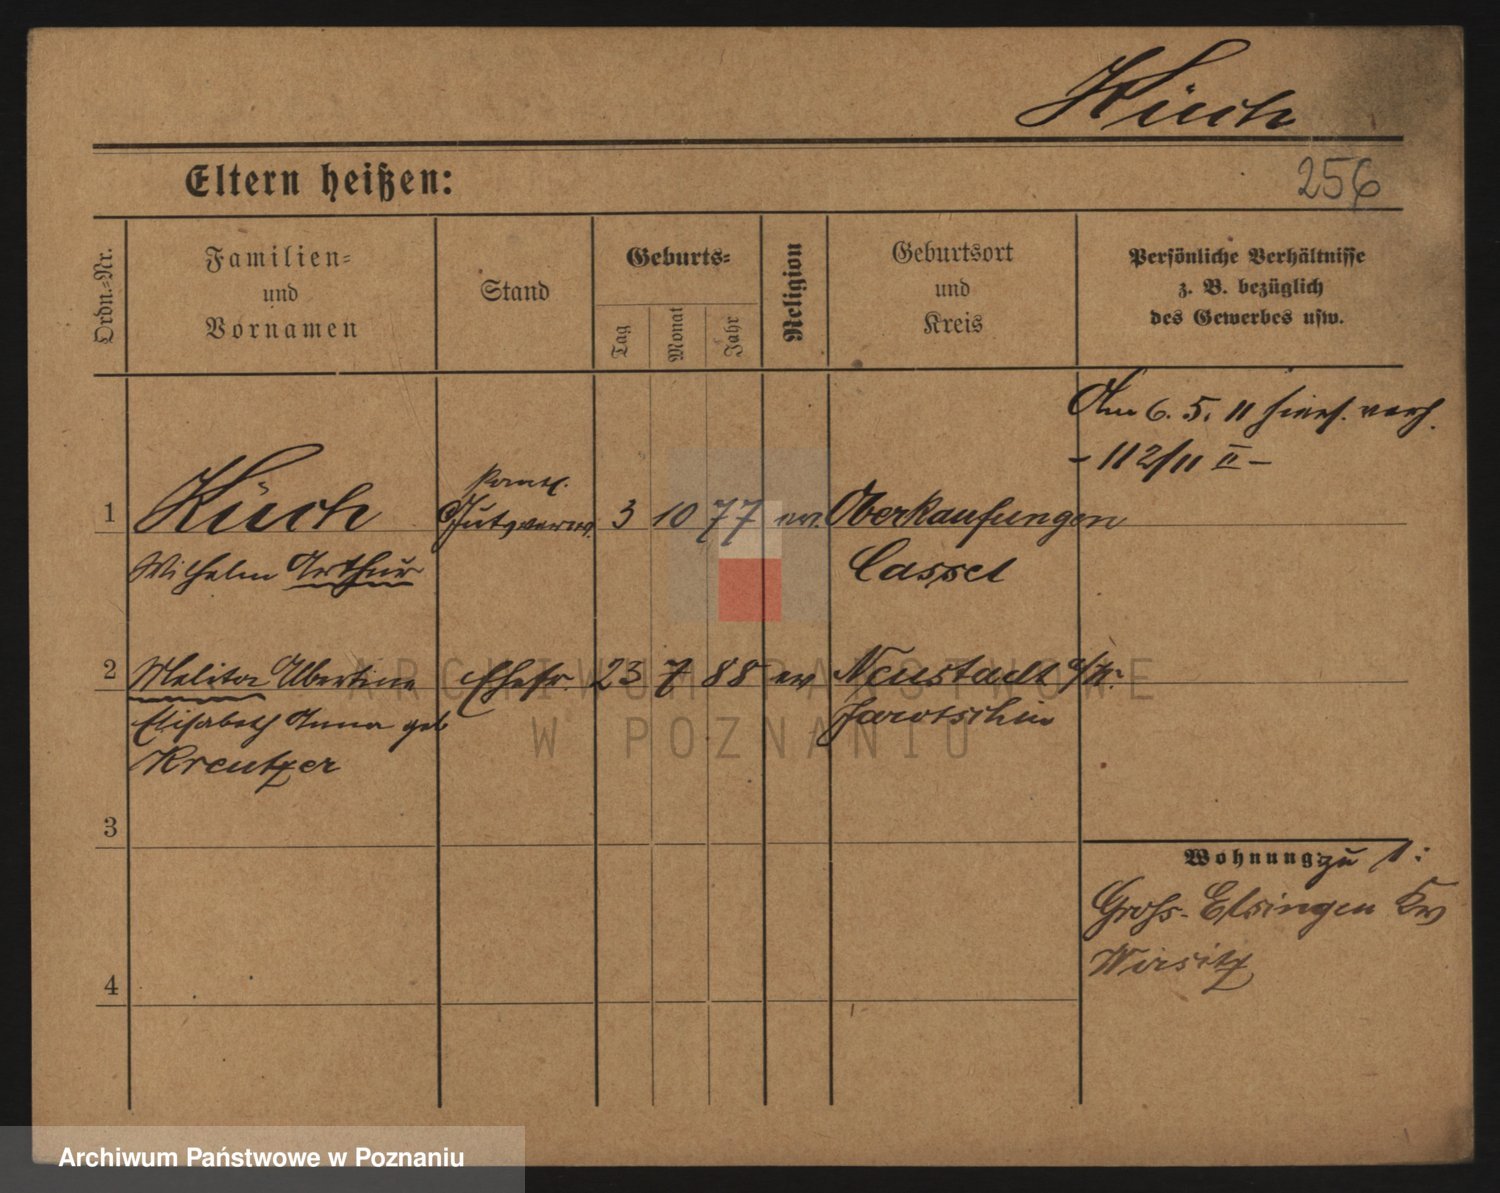 Küch
Eltern heißen:
256
Ordn.-Nr.
Familien-
und
Vornamen
Stand
Geburts-
Tag
Monat
Jahr
Religion
Geburtsort
und
Kreis
Persönliche Verhältnisse
z. B. bezüglich
des Gewerbes usw.
Am 6. 5. 11 hiers. verh.
- 112/11 II -
1 Küch Gutsverw. 3 10 77 ev. Oberkaufungen
Wilhelm Arthur Cassel
2 Melitta Albertine Ehefr. 23 7 88 ev Neustadt a/W:
Elisabeth Anna geb Jarotschin
Kreutzer
3
Wohnung: zu 1:
Groß-Elsingen Kr
Wirsitz
4
ARCHIWUM PAŃSTWOWE
W POZNANIU
Archiwum Państwowe w Poznaniu